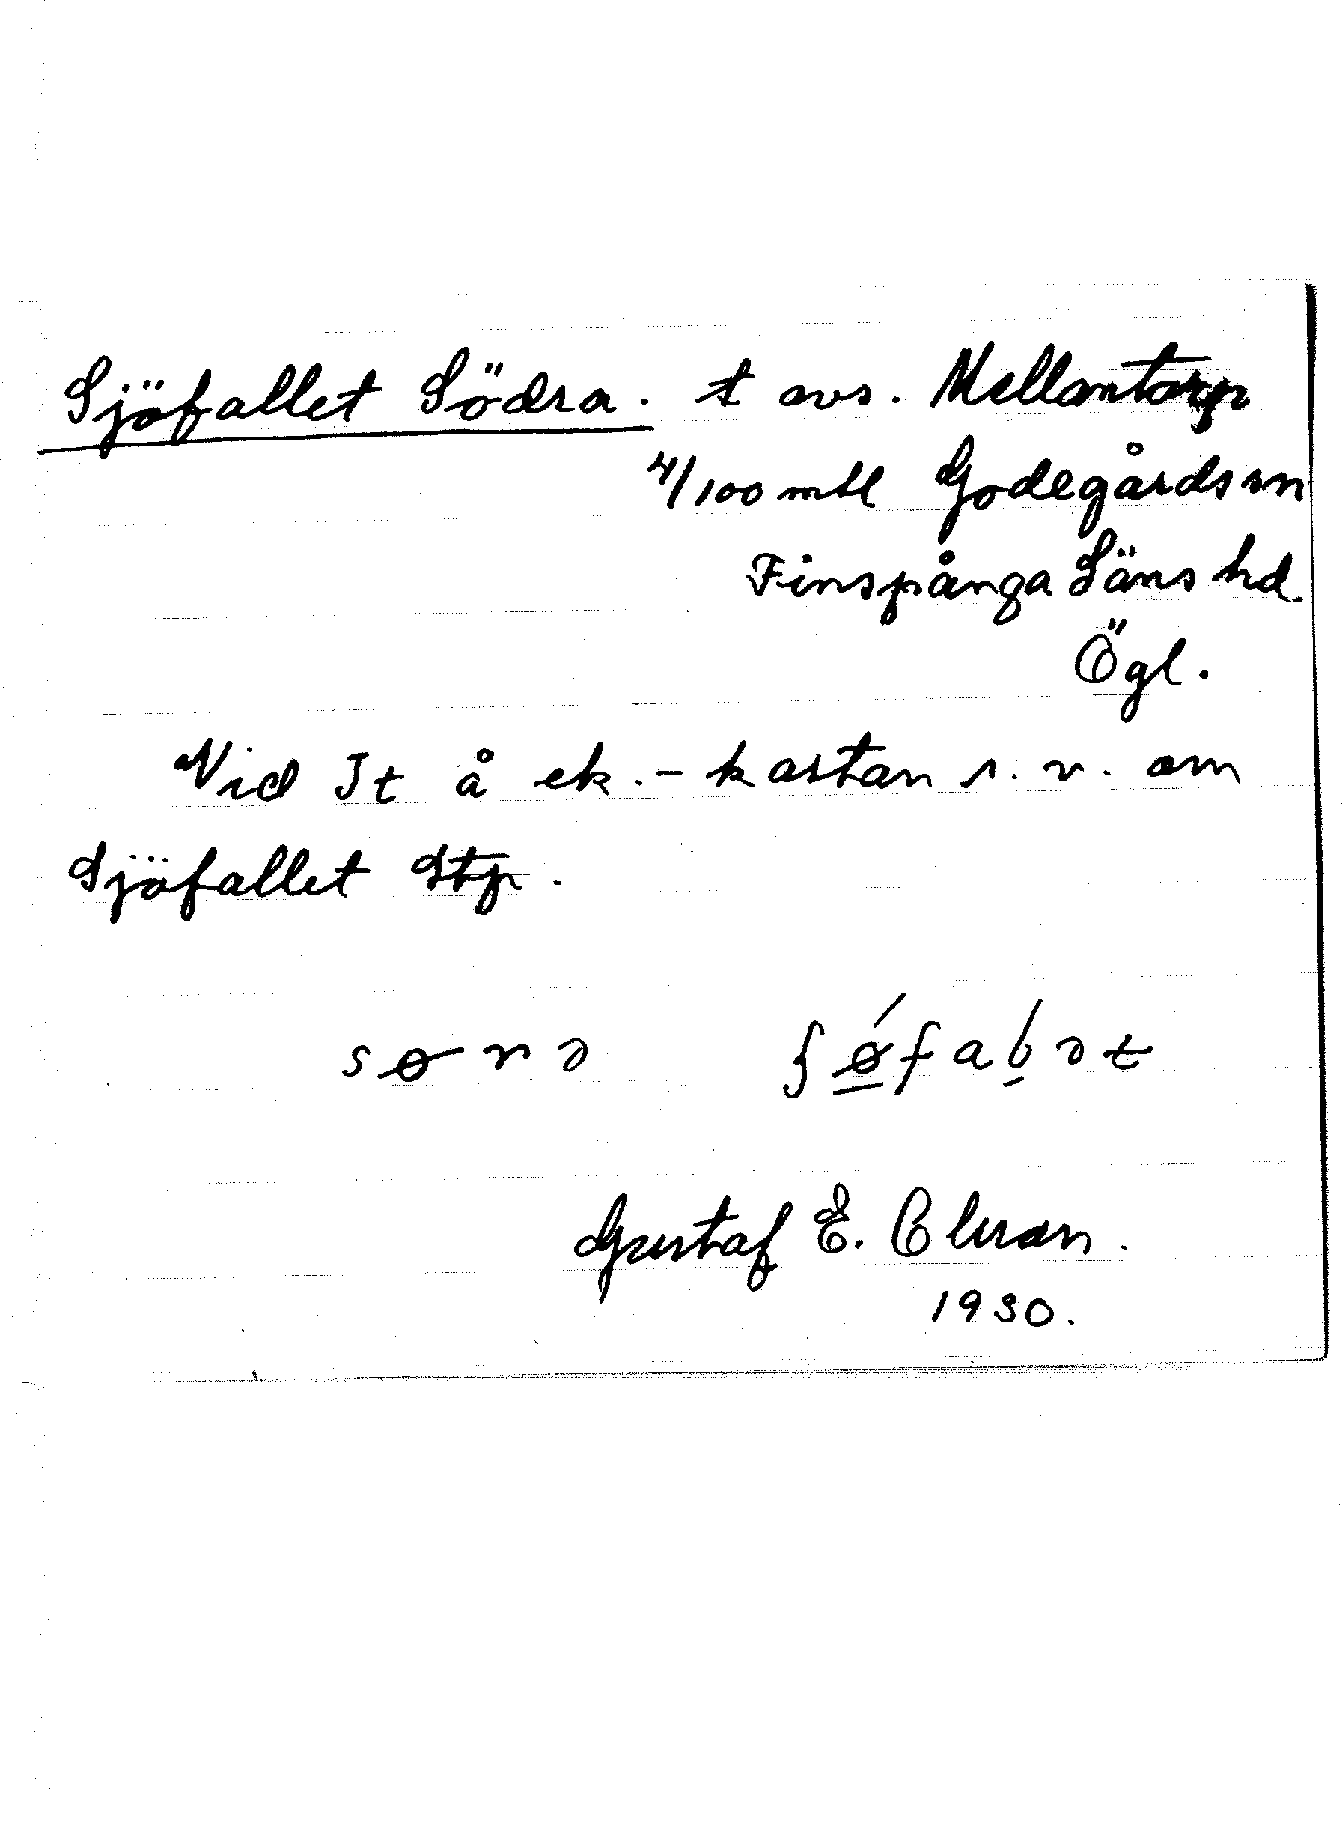 Sjöfallet Södra. t avs. Mellantorp
4/100 mtl Godegårds sn
Finspånga Läns hd.
Ögl.
Vid It å ek.-kartan s. v. om
Sjöfallet Stp.
sørə ʃøfalət
Gustaf E. Cluran.
1930.